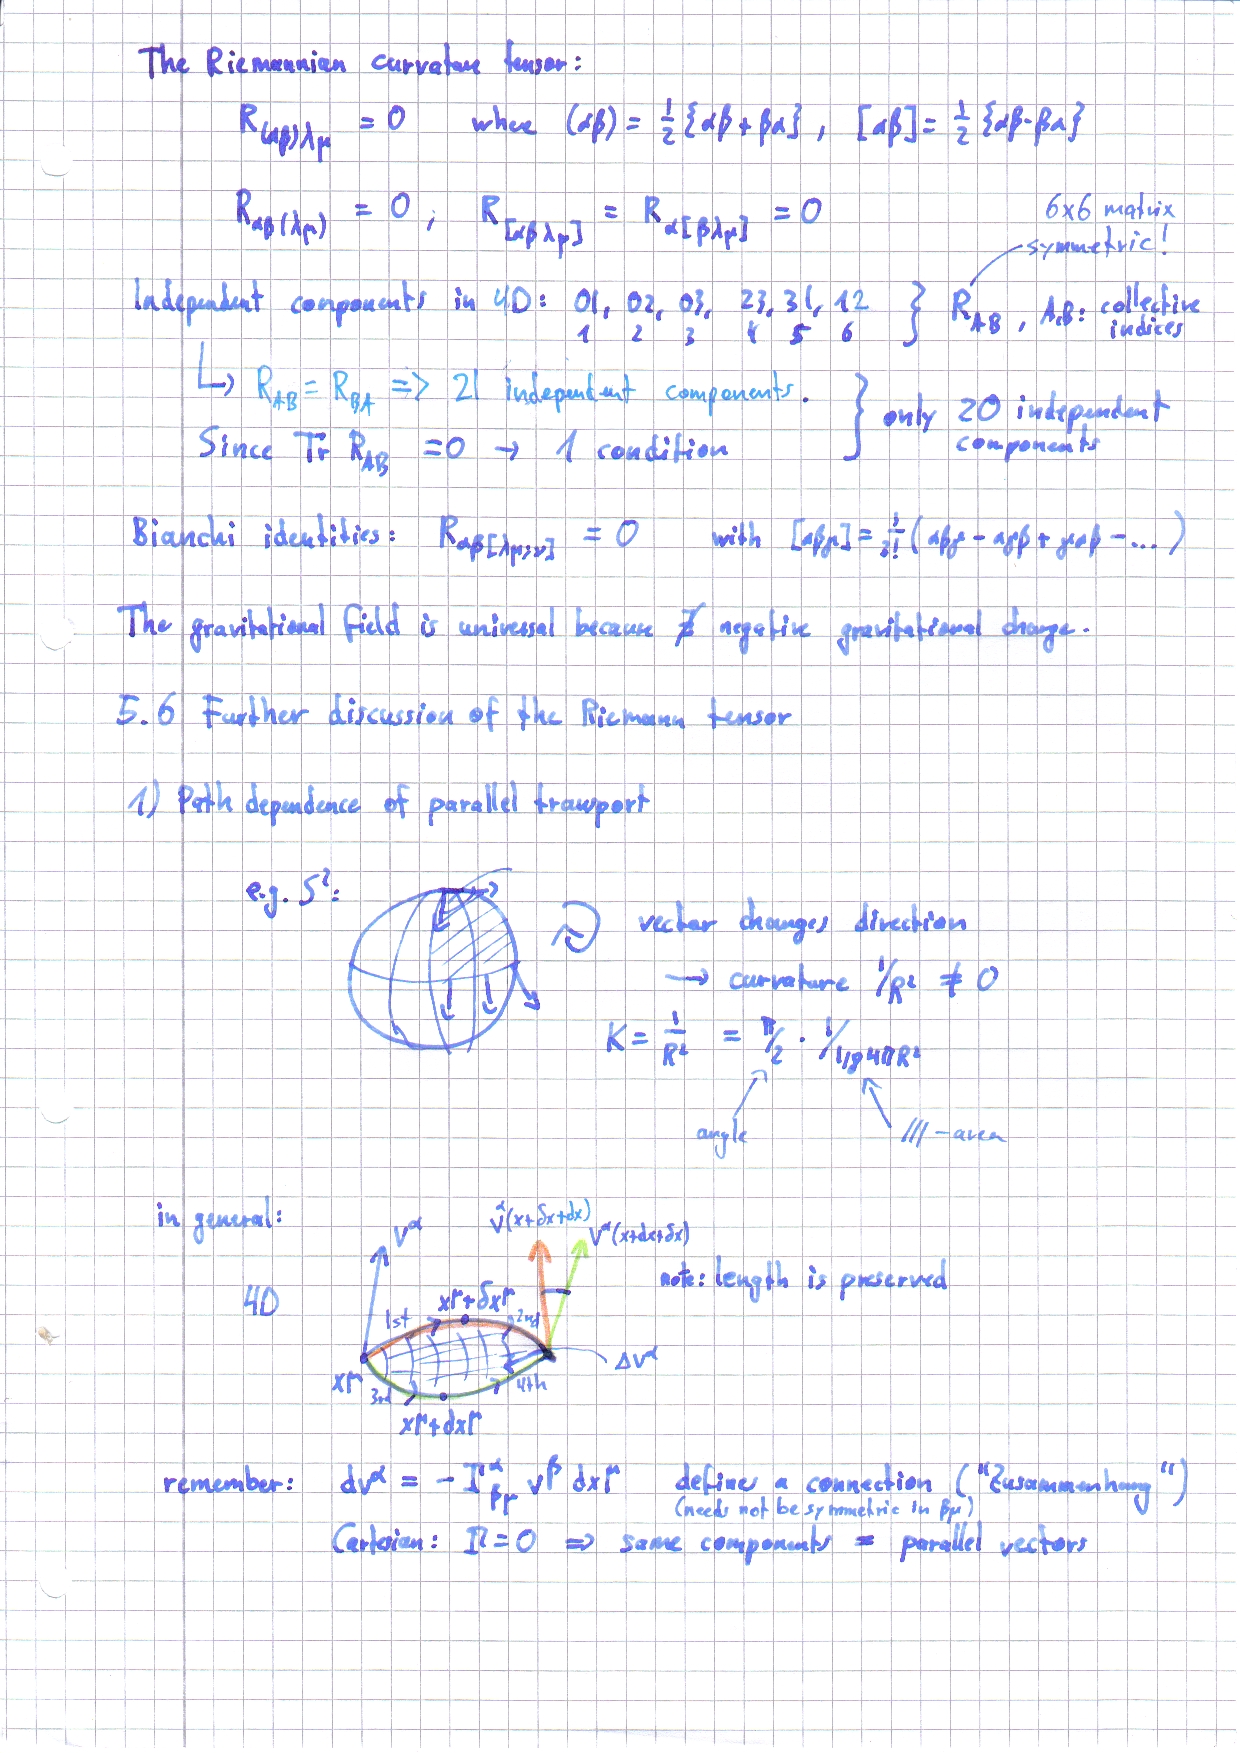 The Riemannian curvature tensor:
R_(αβ)λμ = 0 where (αβ) = 1/2 {αβ + βα}, [αβ] = 1/2 {αβ-βα}
R_αβ(λμ) = 0, R_[αβλμ] = R_α[βλμ] = 0
6x6 matrix
symmetric!
Independent components in 4D: 01, 02, 03, 23, 31, 12 } R_AB, A,B: collective
indices
1 2 3 4 5 6
↳ R_AB = R_BA => 21 independent components.
Since Tr R_AB = 0 → 1 condition
} only 20 independent
components
Bianchi identities: R_αβ[λμ;ν] = 0 with [αβγ] = 1/3! (αβγ - αγβ + γαβ - ...)
The gravitational field is universal because ∄ negative gravitational charge.
5.6 Further discussion of the Riemann tensor
1) Path dependence of parallel transport
e.g. S²:
vector changes direction
→ curvature 1/R² ≠ 0
K = 1/R² = π/2 · 1/1/8 4πR²
angle
/// - area
in general:
4D
V^α
V^α(x+δx+dx)
V^α(x+dx+δx)
note: length is preserved
x^μ+δx^μ
1st
2nd
x^μ
3rd
4th
ΔV^α
x^μ+dx^μ
remember: dv^α = - Γ^α_βμ v^β dx^μ defines a connection ("Zusammenhang")
(needs not be symmetric in βμ)
Cartesian: Γ = 0 ⇒ same components = parallel vectors